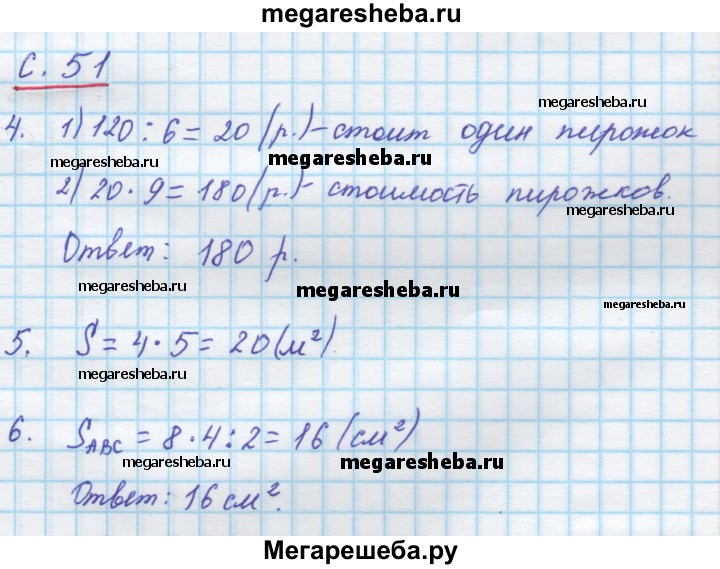 megaresheba.ru
с. 51
megaresheba.ru
4. 1) 120 : 6 = 20 (р.) - стоит один пирожок
megaresheba.ru megaresheba.ru
2) 20 · 9 = 180 (р.) - стоимость пирожков.
megaresheba.ru
Ответ: 180 р.
megaresheba.ru megaresheba.ru megaresheba.ru
5. S = 4 · 5 = 20 (м²).
megaresheba.ru
6. S ABC = 8 · 4 : 2 = 16 (см²)
megaresheba.ru megaresheba.ru
Ответ: 16 см².
Мегарешеба.ру